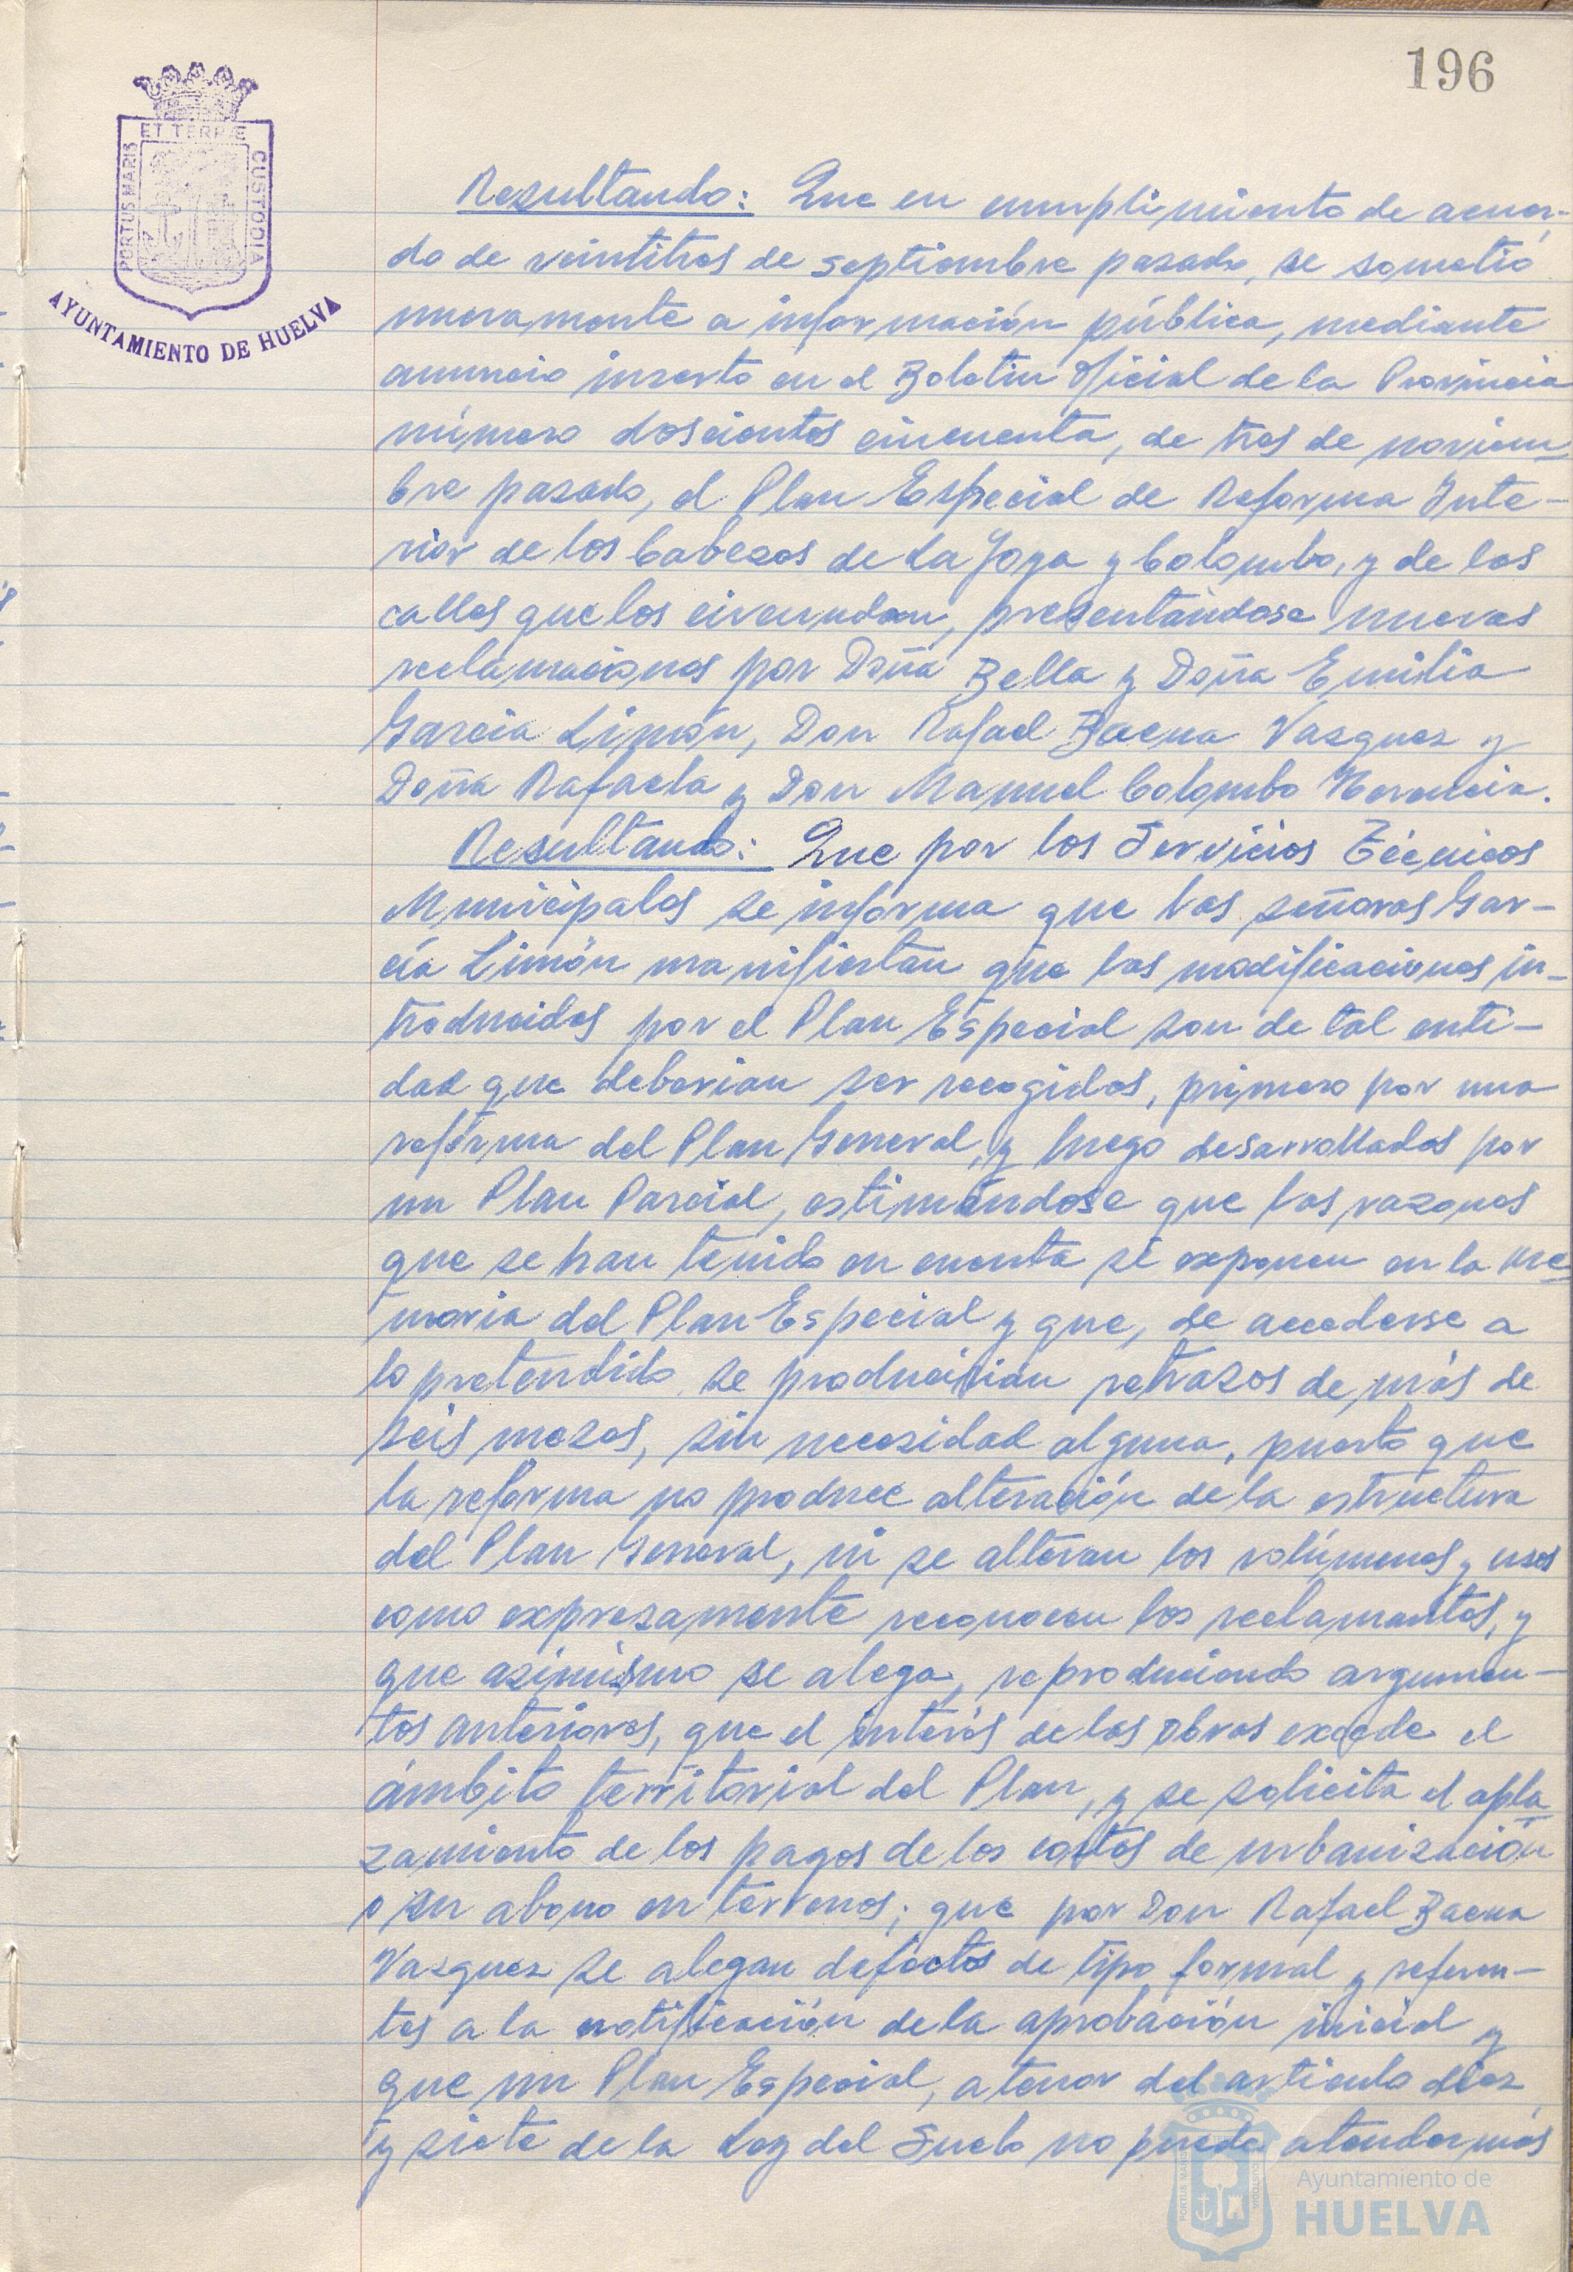 196
ET TERRÆ
PORTUS MARIS
CUSTODIA
AYUNTAMIENTO DE HUELVA
Resultando: Que en cumplimiento de acuer-
do de veintitres de septiembre pasado, se sometió
nuevamente a información pública, mediante
anuncio inserto en el Boletin Oficial de la Provincia
número doscientos cincuenta, de tres de noviem-
bre pasado, el Plan Especial de Reforma Inte-
rior de los Cabezos de La Joya y Colombo, y de las
calles que los circundan, presentándose nuevas
reclamaciones por Doña Bella y Doña Emilia
Garcia Limón, Don Rafael Baena Vazquez y
Doña Rafaela y Don Manuel Colombo Herencia.
Resultando: Que por los Servicios Técnicos
Municipales se informa que las señoras Gar-
cía Limón manifiestan que las modificaciones in-
troducidas por el Plan Especial son de tal enti-
dad que deberian ser recogidas, primero por una
reforma del Plan General, y luego desarrolladas por
un Plan Parcial, estimándose que las razones
que se han tenido en cuenta si exponen en la me-
moria del Plan Especial y que, de accederse a
lo pretendido, se producirian retrazos de más de
seis meses, sin necesidad alguna, puesto que
la reforma no produce alteración de la estructura
del Plan General, ni se alteran los volúmenes y usos
como expresamente reconocen los reclamantes, y
que asimismo se alega, reproduciendo argumen-
tos anteriores, que el interés de las obras excede el
ámbito territorial del Plan, y se solicita el apla-
zamiento de los pagos de los costes de urbanización
o su abono en terrenos; que por Don Rafael Baena
Vazquez se alegan defectos de tipo formal y referen-
tes a la notificación de la aprobación inicial y
que un Plan Especial, a tenor del articulo diez
y siete de la Ley del Suelo no puede atender más
Ayuntamiento de
HUELVA